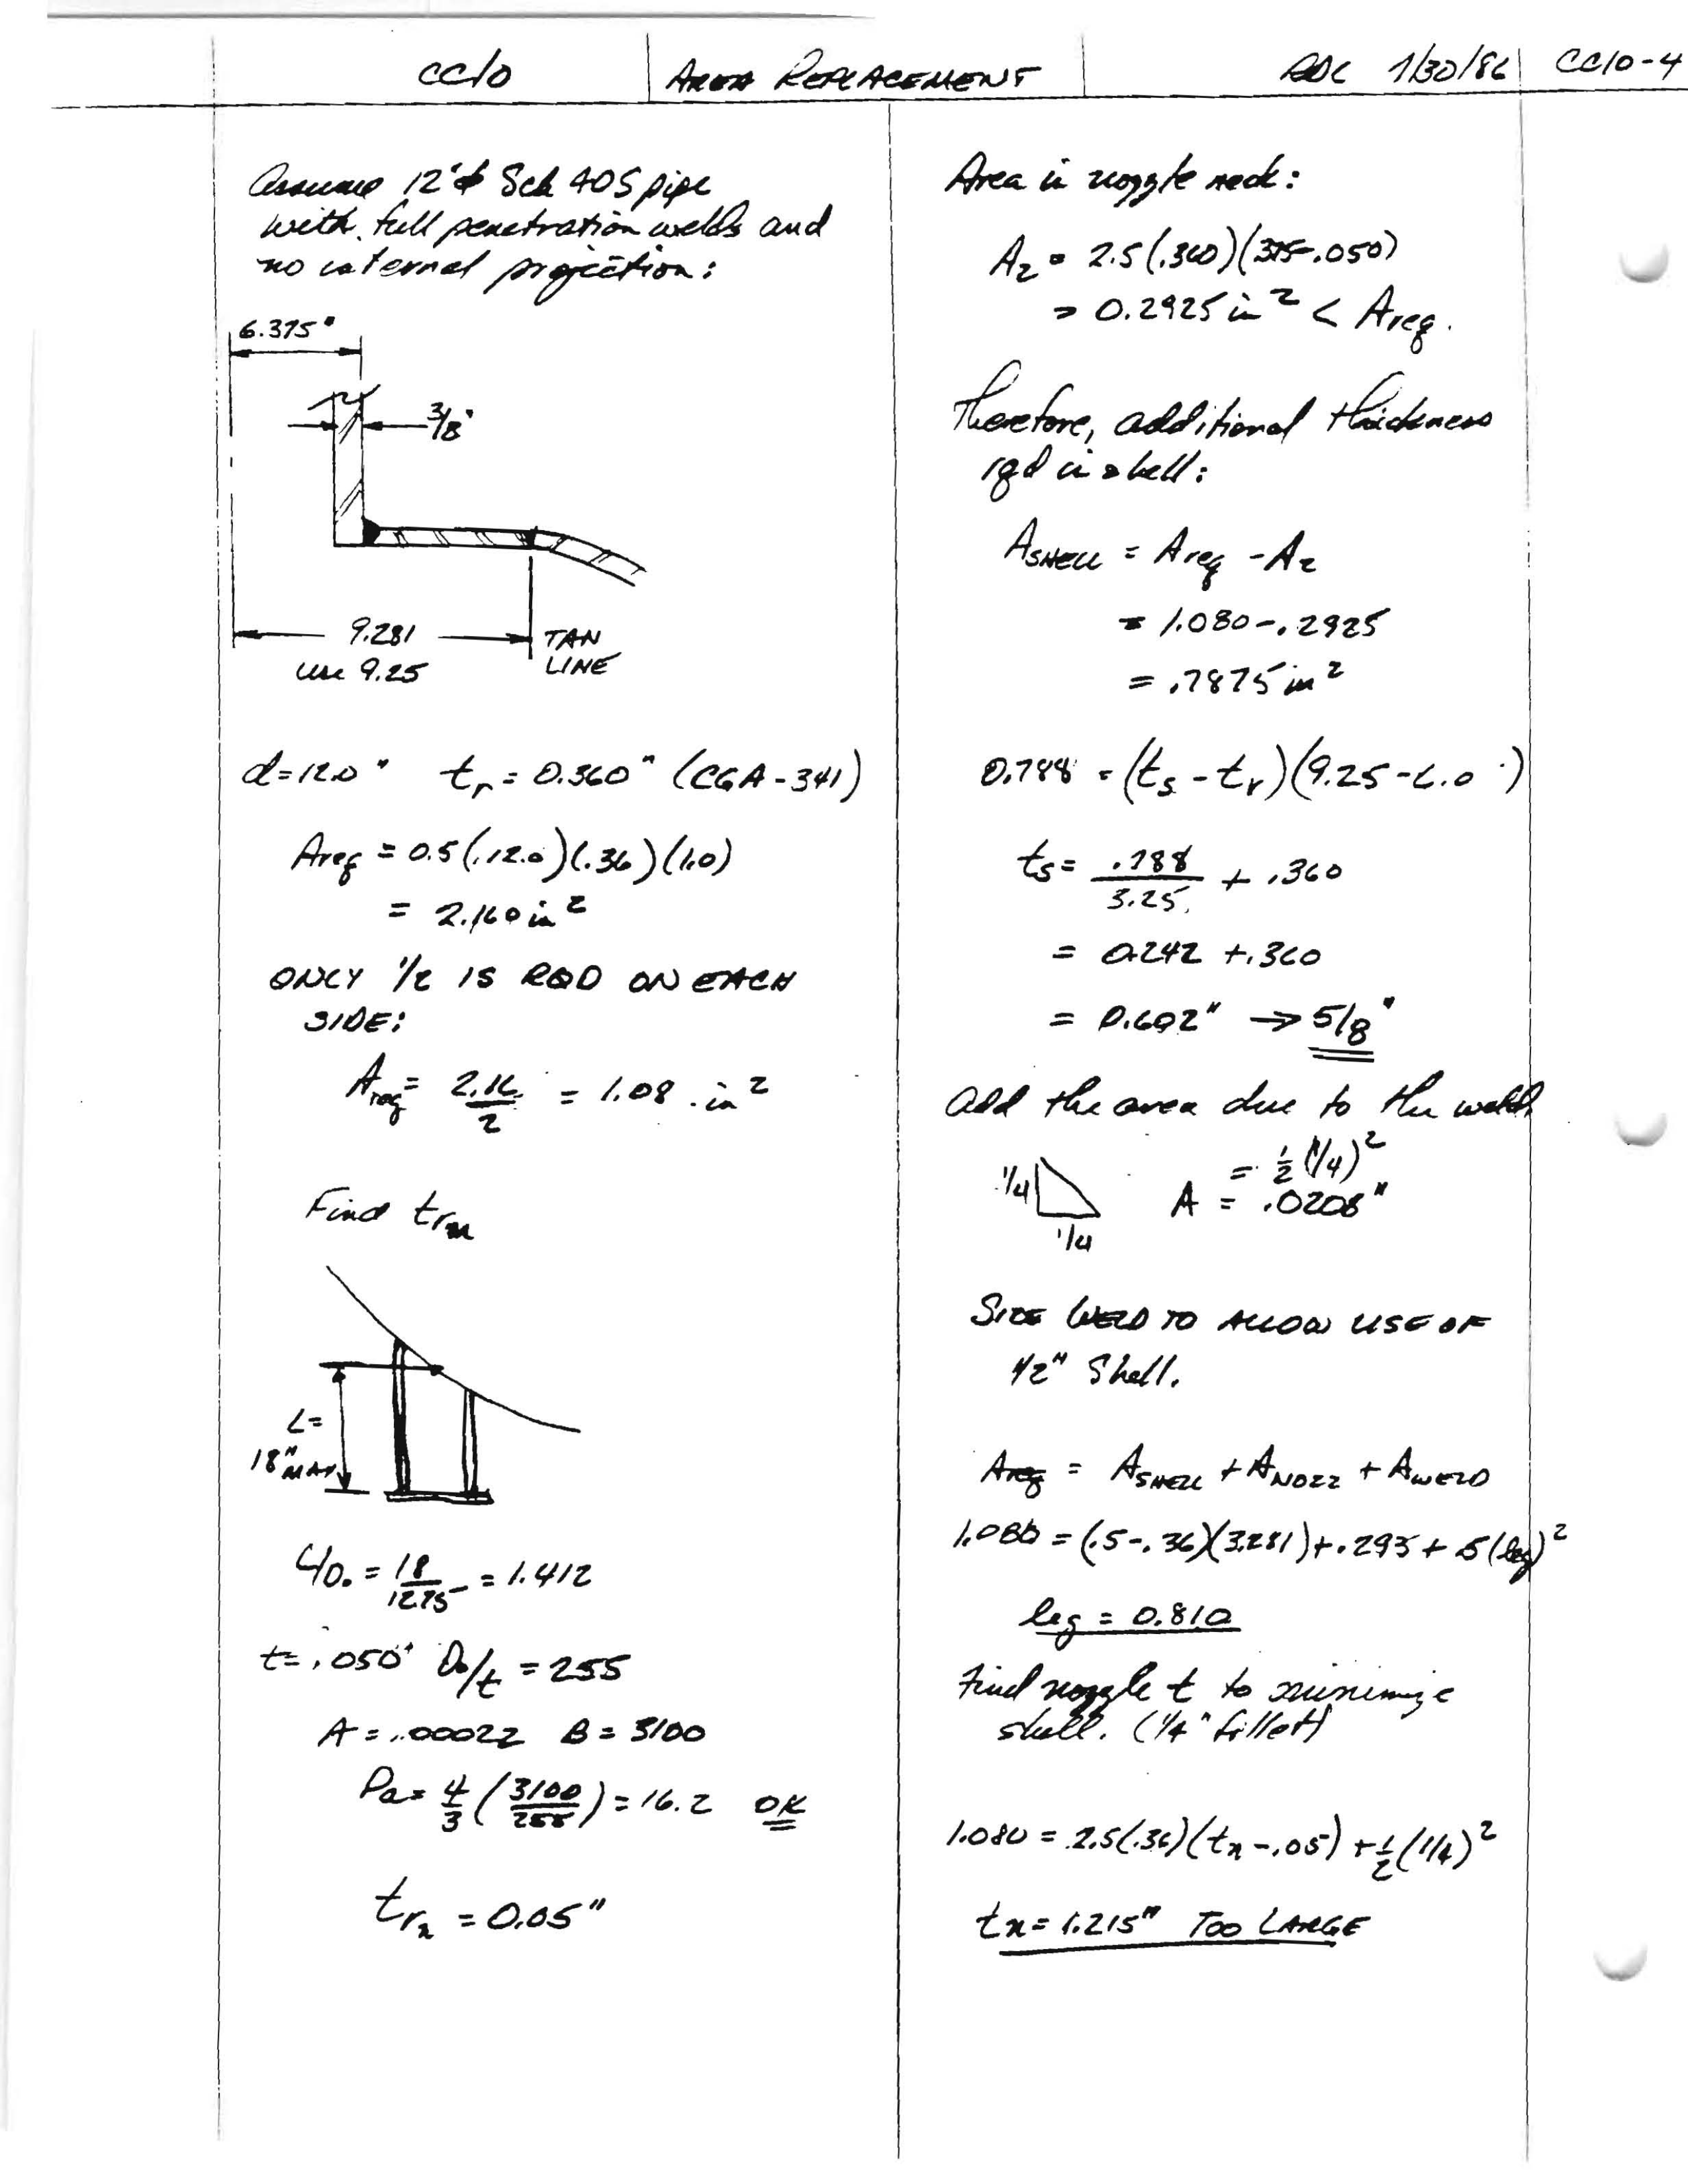 CC10
AREA REPLACEMENT
RDC 1/30/86
CC10-4
Assume 12"φ Sch 40S pipe
with full penetration welds and
no internal projection:
6.375"
3/8"
9.281
use 9.25
TAN
LINE
d=12.0" tr = 0.360" (CGA-341)
Areq = 0.5(12.0)(.36)(1.0)
= 2.160 in²
ONLY 1/2 IS RQD ON EACH
SIDE:
Areq = 2.16/2 = 1.08 in²
Find trn
L=
18" MAX
L/Do = 18/12.75 = 1.412
t=.050" Do/t = 255
A = .00022 B = 3100
Pa = 4/3 (3100/255) = 16.2 OK
trn = 0.05"
Area in nozzle neck:
A2 = 2.5(.360)(.375-.050)
= 0.2925 in² < Areq.
Therefore, additional thickness
rqd in shell:
ASHELL = Areq - A2
= 1.080-.2925
= .7875 in²
0.788 = (ts - tr)(9.25-6.0)
ts = .788/3.25 + .360
= 0.242 + .360
= 0.602" → 5/8"
Add the area due to the weld.
1/4
1/4
= 1/2 (1/4)²
A = .0208"
SIZE WELD TO ALLOW USE OF
1/2" Shell.
Areq = ASHELL + ANOZZ + AWELD
1.080 = (.5-.36)(3.281)+.293+.5(leg)²
leg = 0.810
Find nozzle t to minimize
shell. (1/4" fillet)
1.080 = 2.5(.36)(tn-.05) + 1/2(1/4)²
tn = 1.215" TOO LARGE